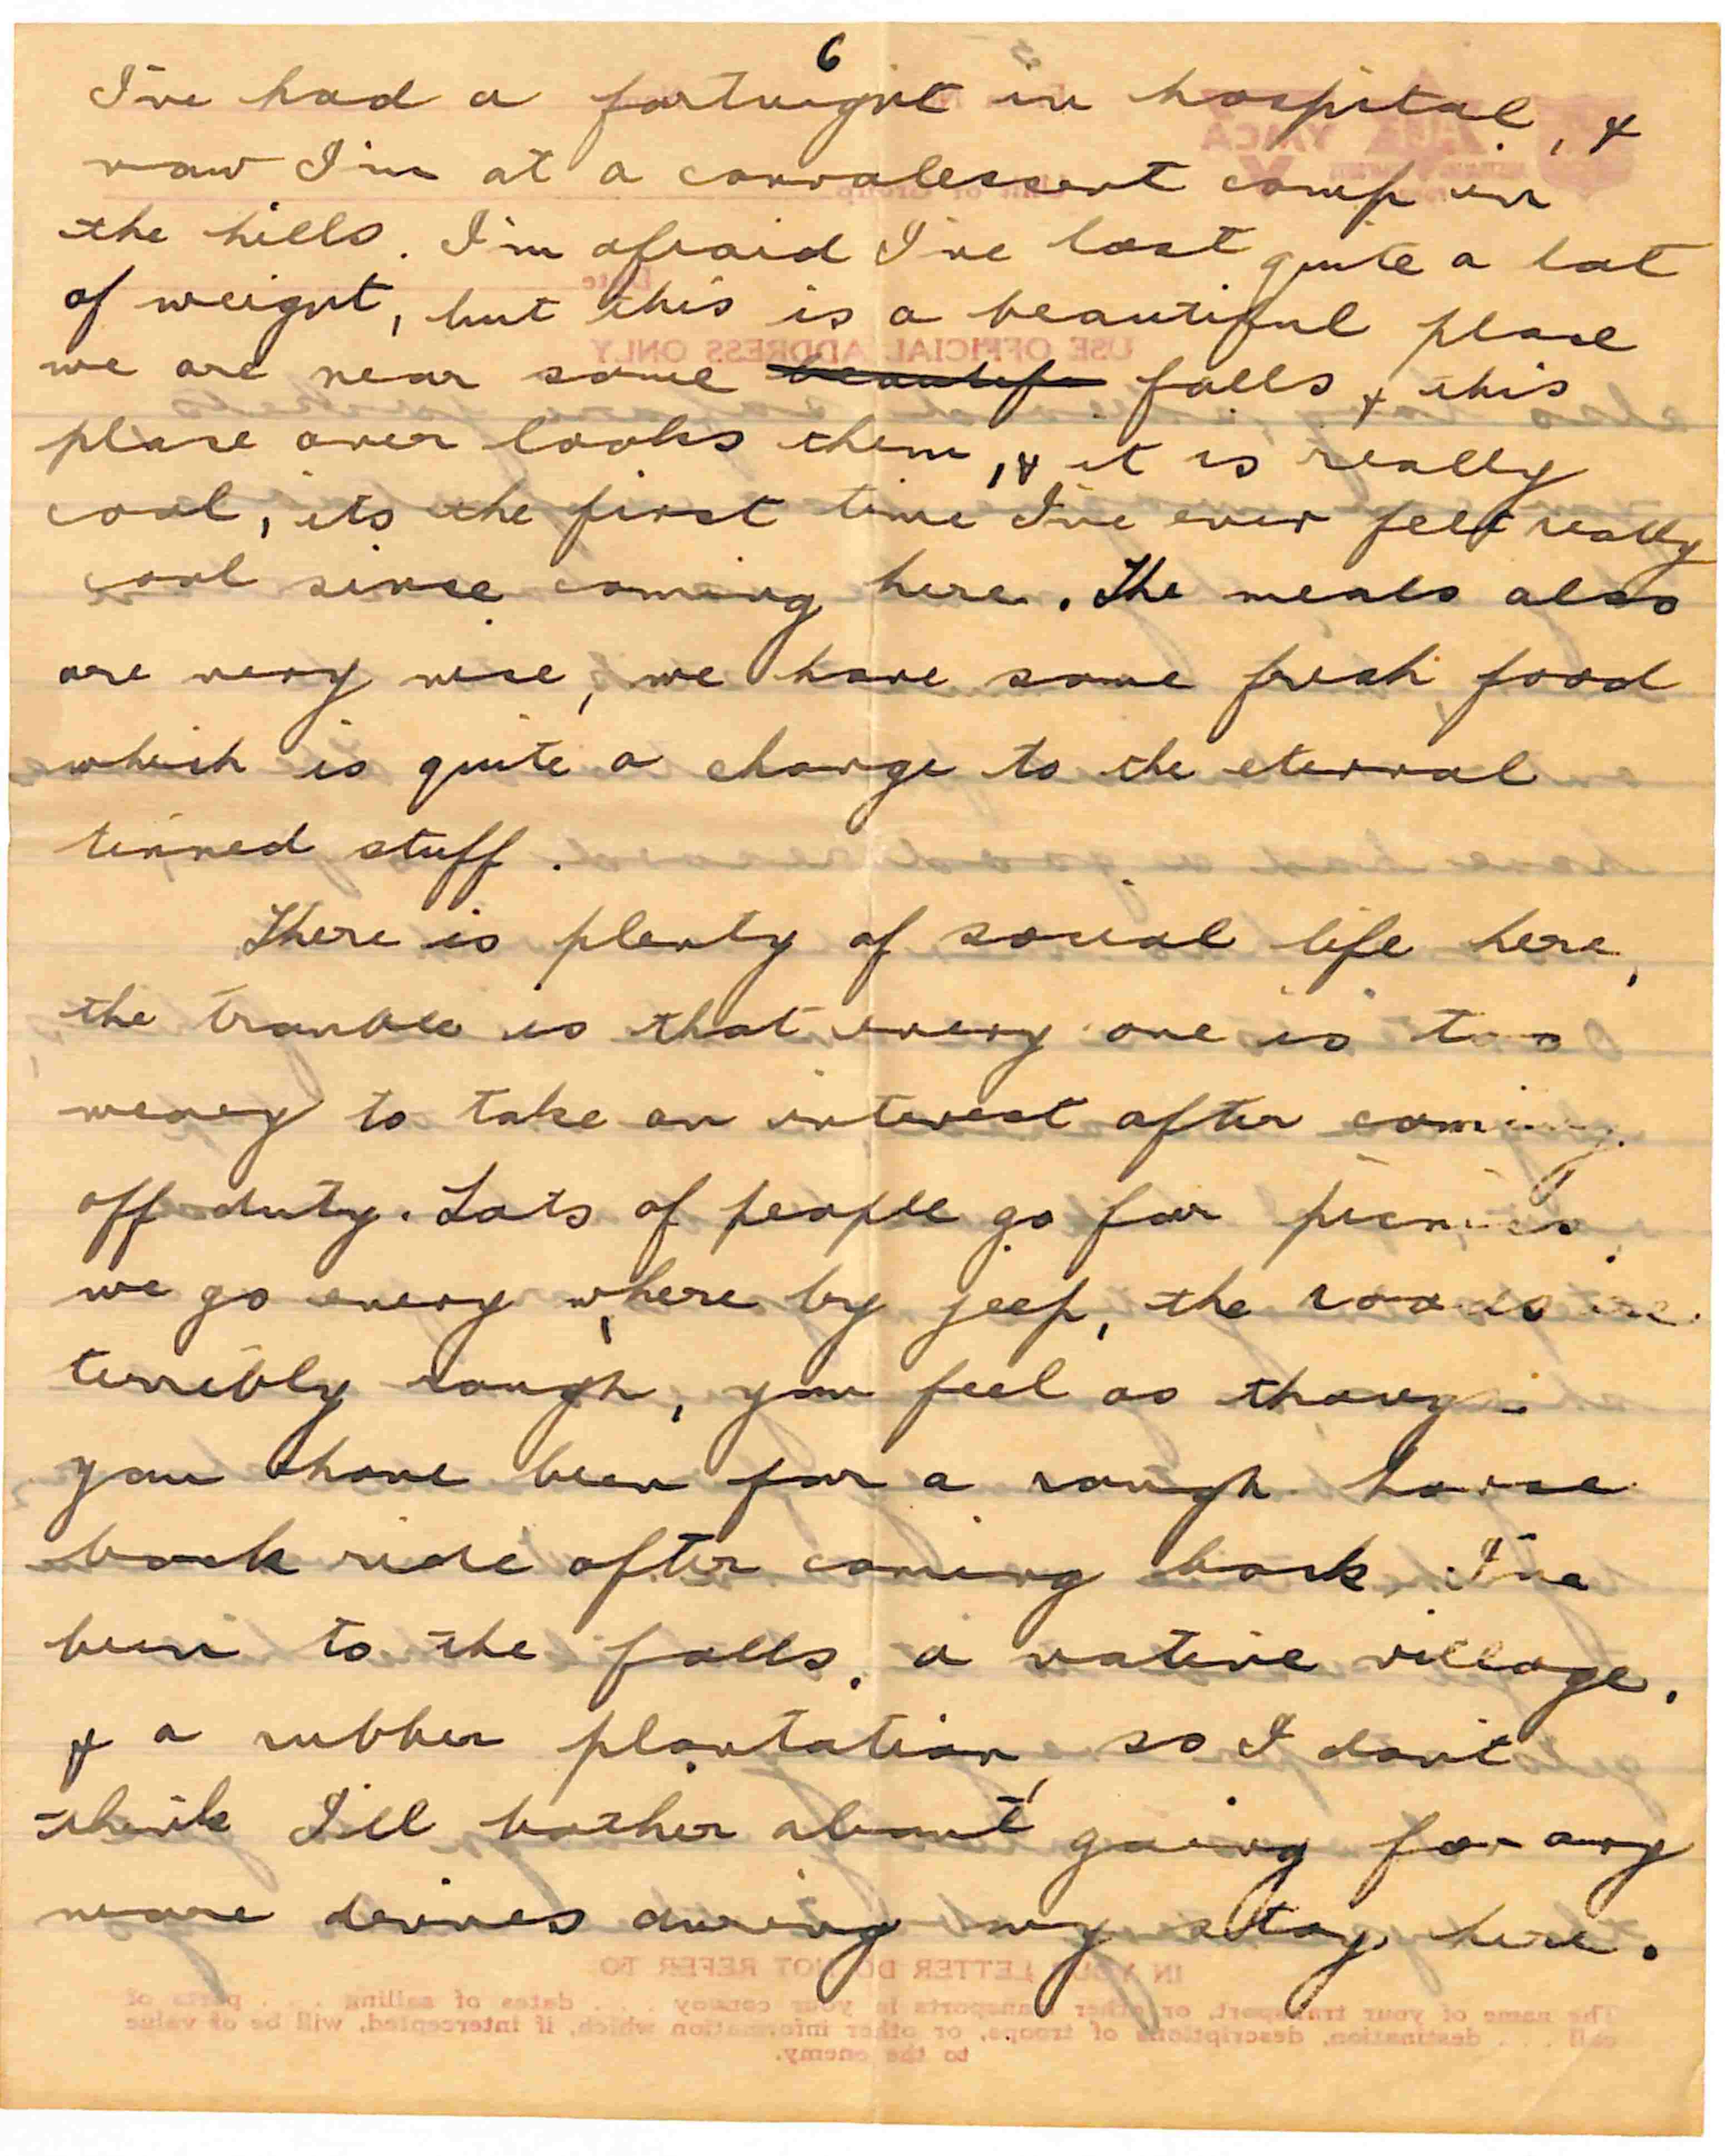 6
I've had a fortnight in hospital, &
now I'm at a convalescent camp in
the hills. I'm afraid I've lost quite a lot
of weight, but this is a beautiful place
we are near some beautifu falls & this
place over looks them, & it is really
cool, its the first time I've ever felt really
cool since coming here. The meals also
are very nice, we have some fresh food
which is quite a change to the eternal
tinned stuff.
There is plenty of social life here,
the trouble is that every one is too
weary to take an interest after coming
off duty. Lots of people go for picnics
we go every where by jeep, the roads are
terribly rough, you feel as though
you have been for a rough horse
back ride after coming back. I've
been to the falls, a native village,
& a rubber plantation, so I don't
think I'll bother about going for any
more drives during my stay here.
USE OFFICIAL ADDRESS ONLY
Date
YMCA
IN YOUR LETTER DO NOT REFER TO
The name of your transport, or other transports in your convoy . . . dates of sailing . . . ports of
call . . . destination, descriptions of troops, or other information which, if intercepted, will be of value
to the enemy.